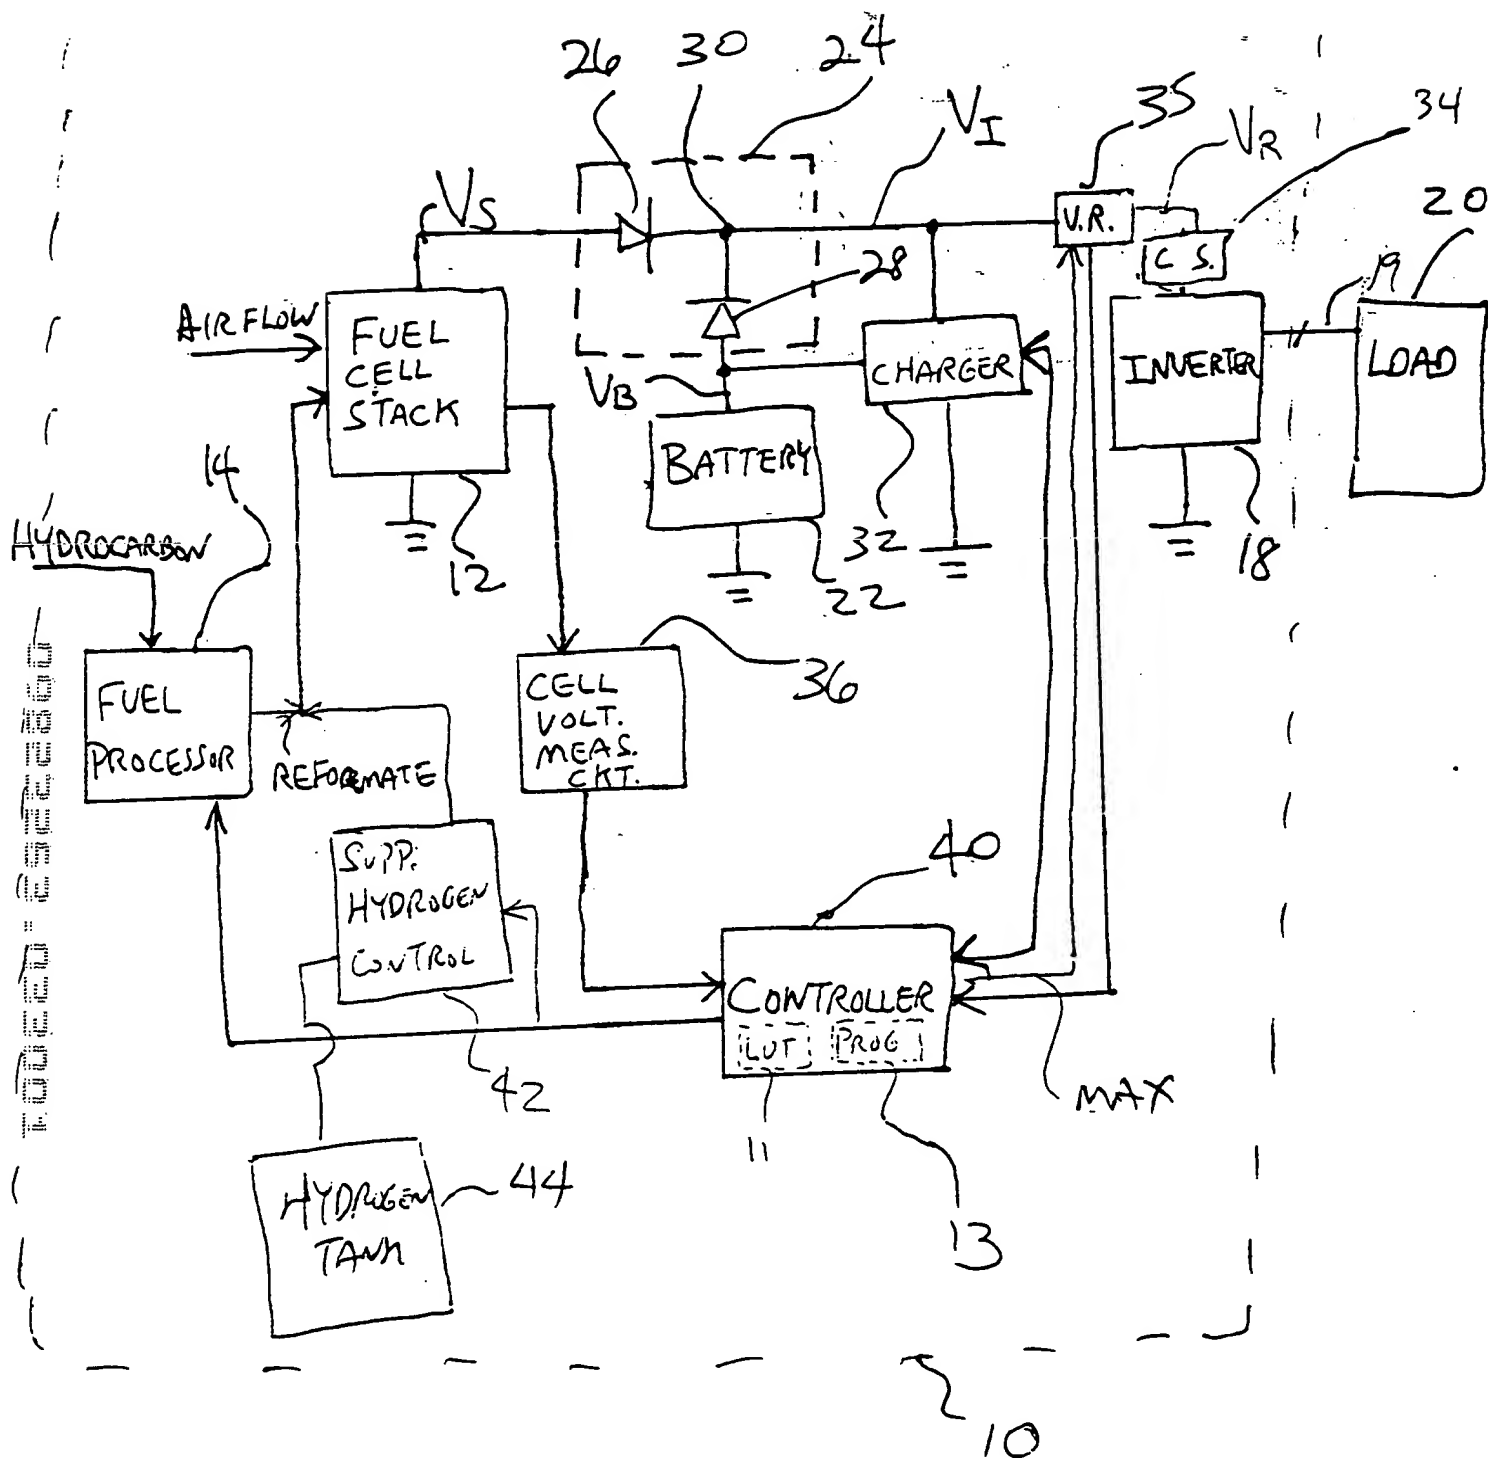 26
30
24
35
34
V_I
V_R
20
V_S
V.R.
C.S.
28
19
AIRFLOW
FUEL
CELL
STACK
CHARGER
INVERTER
LOAD
V_B
BATTERY
14
HYDROCARBON
12
32
22
18
36
FUEL
PROCESSOR
CELL
VOLT.
MEAS.
CKT.
REFORMATE
SUPP.
HYDROGEN
CONTROL
40
CONTROLLER
LUT
PROG
42
MAX
11
13
HYDROGEN
TANK
44
10